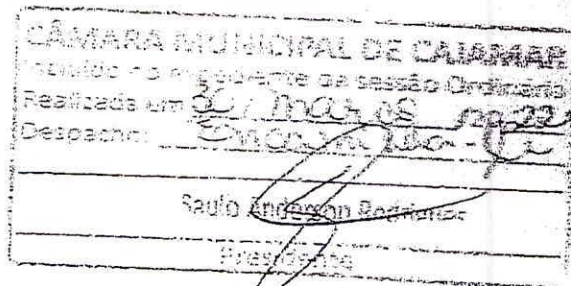 CÂMARA MUNICIPAL DE CAJAMAR
Incluído no expediente da sessão Ordinária
Realizada em
Despacho: Encaminha-se
Saulo Anderson Rodrigues
Presidente